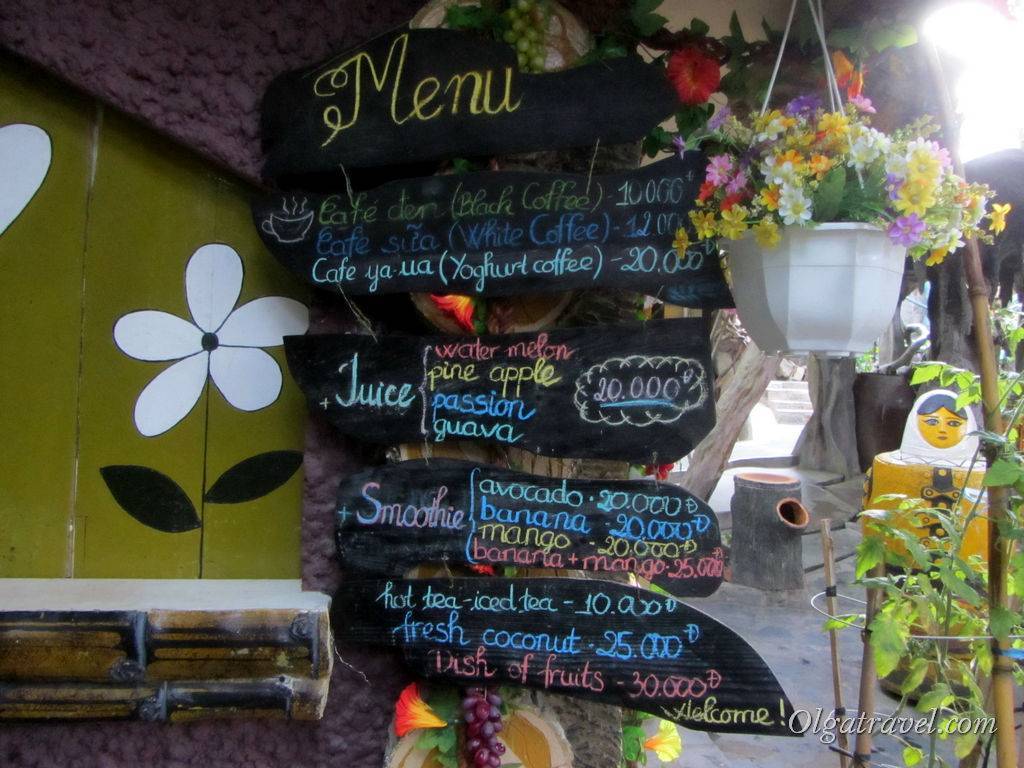 Menu
Café đen (Black Coffee) - 10.000đ
Cafe sữa (White Coffee) - 12.00
Cafe ya-ua (Yoghurt coffee) - 20.000
+ Juice
water melon
pine apple
passion
guava
20.000đ
+ Smoothie
avocado - 20.000đ
banana 20.000đ
mango - 20.000đ
banana + mango - 25.000
hot tea-iced tea - 10.000đ
fresh coconut - 25.000đ
Dish of fruits - 30.000đ
Welcome!
Olgatravel.com